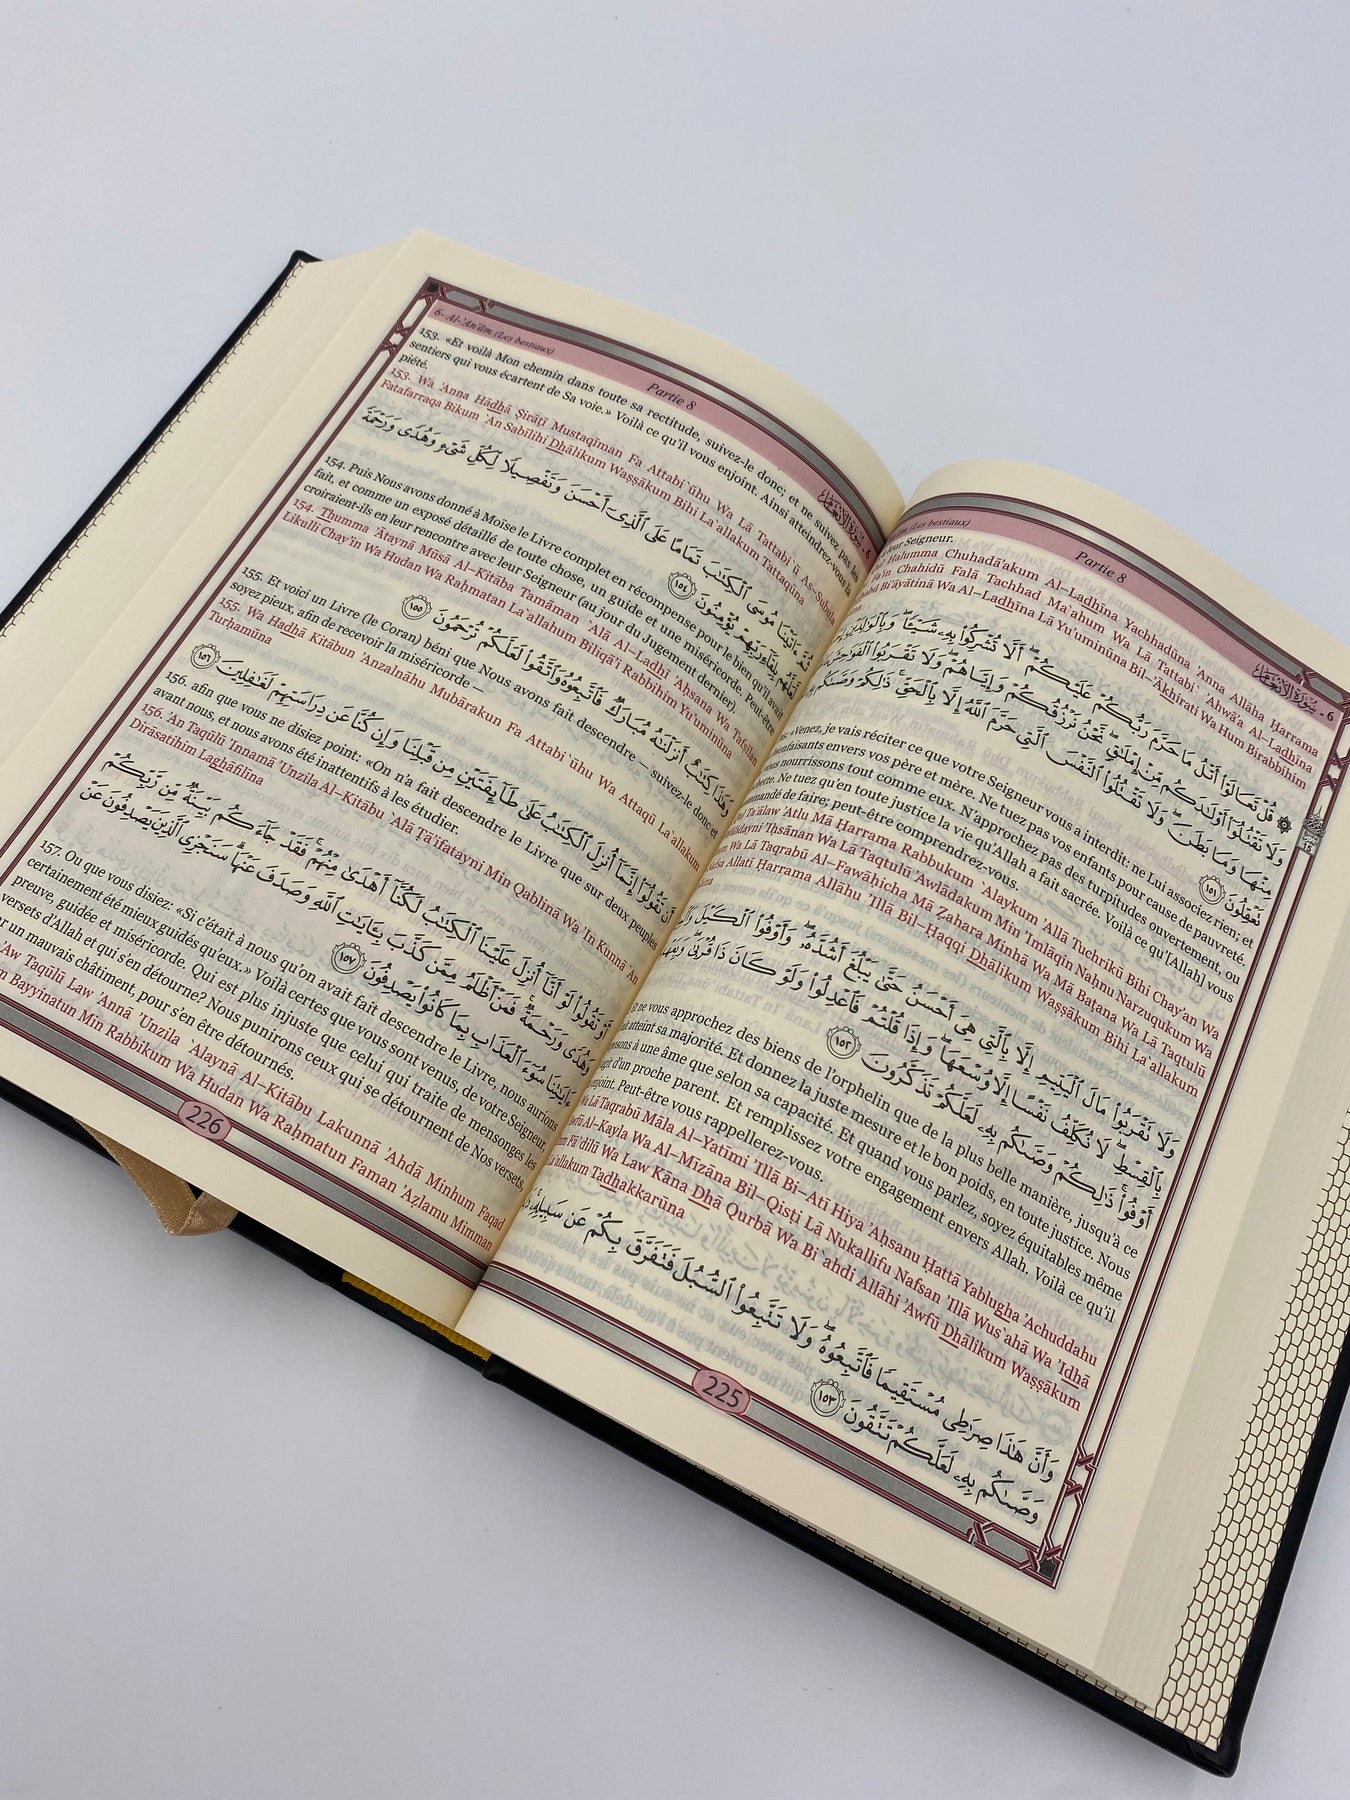 (Les bestiaux) Partie 8 سُورَةُ الأَنْعَام - 6
leur Seigneur.
Halumma Chuhadā'akum Al–Ladhīna Yachhadūna 'Anna Allāha Ĥarrama
Fa'in Chahidū Falā Tachhad Ma`ahum Wa Lā Tattabi` 'Ahwā'a Al–Ladhīna
Bi'āyātinā Wa Al–Ladhīna Lā Yu'uminūna Bil–'Ākhirati Wa Hum Birabbihim
۞ قُلْ تَعَالَوْا۟ أَتْلُ مَا حَرَّمَ رَبُّكُمْ عَلَيْكُمْ ۖ أَلَّا تُشْرِكُوا۟ بِهِۦ شَيْـًٔا ۖ وَبِٱلْوَٰلِدَيْنِ
وَلَا تَقْتُلُوٓا۟ أَوْلَـٰدَكُم مِّنْ إِمْلَـٰقٍ ۖ نَّحْنُ نَرْزُقُكُمْ وَإِيَّاهُمْ ۖ وَلَا تَقْرَبُوا۟ ٱلْفَوَٰحِشَ
مِنْهَا وَمَا بَطَنَ ۖ وَلَا تَقْتُلُوا۟ ٱلنَّفْسَ ٱلَّتِى حَرَّمَ ٱللَّهُ إِلَّا بِٱلْحَقِّ ۚ ذَٰلِكُمْ وَصَّىٰكُم
تَعْقِلُونَ ١٥١
«Venez, je vais réciter ce que votre Seigneur vous a interdit: ne Lui associez rien; et
bienfaisants envers vos père et mère. Ne tuez pas vos enfants pour cause de pauvreté.
nourrissons tout comme eux. N'approchez pas des turpitudes ouvertement, ou
Ne tuez qu'en toute justice la vie qu'Allah a fait sacrée. Voilà ce qu'[Allah] vous
de faire; peut-être comprendrez-vous.
Ta`ālaw 'Atlu Mā Ĥarrama Rabbukum `Alaykum 'Allā Tuchrikū Bihi Chay'an Wa
'Iĥsānan Wa Lā Taqtulū 'Awlādakum Min 'Imlāqin Naĥnu Narzuqukum Wa
Wa Lā Taqrabū Al–Fawāĥicha Mā Žahara Minhā Wa Mā Baţana Wa Lā Taqtulū
Allatī Ĥarrama Allāhu 'Illā Bil–Ĥaqqi Dhālikum Waşşākum Bihi La`allakum
وَلَا تَقْرَبُوا۟ مَالَ ٱلْيَتِيمِ إِلَّا بِٱلَّتِى هِىَ أَحْسَنُ حَتَّىٰ يَبْلُغَ أَشُدَّهُۥ ۖ وَأَوْفُوا۟ ٱلْكَيْلَ
بِٱلْقِسْطِ ۖ لَا نُكَلِّفُ نَفْسًا إِلَّا وُسْعَهَا ۖ وَإِذَا قُلْتُمْ فَٱعْدِلُوا۟ وَلَوْ كَانَ ذَا قُرْبَىٰ ۖ وَبِعَهْدِ
أَوْفُوا۟ ۚ ذَٰلِكُمْ وَصَّىٰكُم بِهِۦ لَعَلَّكُمْ تَذَكَّرُونَ ١٥٢
Et ne vous approchez des biens de l'orphelin que de la plus belle manière, jusqu'à ce
atteint sa majorité. Et donnez la juste mesure et le bon poids, en toute justice. Nous
à une âme que selon sa capacité. Et quand vous parlez, soyez équitables même
d'un proche parent. Et remplissez votre engagement envers Allah. Voilà ce qu'il
enjoint. Peut-être vous rappellerez-vous.
Lā Taqrabū Māla Al–Yatīmi 'Illā Bi–Atī Hiya 'Aĥsanu Ĥattá Yablugha 'Achuddahu
Al–Kayla Wa Al–Mīzāna Bil–Qisţi Lā Nukallifu Nafsan 'Illā Wus`ahā Wa 'Idhā
Fā`dilū Wa Law Kāna Dhā Qurbá Wa Bi`ahdi Allāhi 'Awfū Dhālikum Waşşākum
La`allakum Tadhakkarūna
وَأَنَّ هَـٰذَا صِرَٰطِى مُسْتَقِيمًا فَٱتَّبِعُوهُ ۖ وَلَا تَتَّبِعُوا۟ ٱلسُّبُلَ فَتَفَرَّقَ بِكُمْ عَن سَبِيلِهِۦ ۚ
وَصَّىٰكُم بِهِۦ لَعَلَّكُمْ تَتَّقُونَ ١٥٣
225
6- Al-'An`ām (Les bestiaux) Partie 8 سُورَةُ الأَنْعَام - 6
153. «Et voilà Mon chemin dans toute sa rectitude, suivez-le donc; et ne suivez pas les
sentiers qui vous écartent de Sa voie.» Voilà ce qu'il vous enjoint. Ainsi atteindrez-vous la
piété.
153. Wa 'Anna Hādhā Şirāţī Mustaqīman Fa Attabi`ūhu Wa Lā Tattabi`ū As–Subula
Fatafarraqa Bikum `An Sabīlihi Dhālikum Waşşākum Bihi La`allakum Tattaqūna
ثُمَّ ءَاتَيْنَا مُوسَى ٱلْكِتَـٰبَ تَمَامًا عَلَى ٱلَّذِىٓ أَحْسَنَ وَتَفْصِيلًا لِّكُلِّ شَىْءٍ وَهُدًى وَرَحْمَةً
لَّعَلَّهُم بِلِقَآءِ رَبِّهِمْ يُؤْمِنُونَ ١٥٤
154. Puis Nous avons donné à Moïse le Livre complet en récompense pour le bien qu'il avait
fait, et comme un exposé détaillé de toute chose, un guide et une miséricorde. Peut-être
croiraient-ils en leur rencontre avec leur Seigneur (au jour du Jugement dernier).
154. Thumma 'Ātaynā Mūsá Al–Kitāba Tamāman `Alá Al–Ladhī 'Aĥsana Wa Tafşīlan
Likulli Chay'in Wa Hudan Wa Raĥmatan La`allahum Biliqā'i Rabbihim Yu'uminūna
وَهَـٰذَا كِتَـٰبٌ أَنزَلْنَـٰهُ مُبَارَكٌ فَٱتَّبِعُوهُ وَٱتَّقُوا۟ لَعَلَّكُمْ تُرْحَمُونَ ١٥٥
155. Et voici un Livre (le Coran) béni que Nous avons fait descendre — suivez-le donc et
soyez pieux, afin de recevoir la miséricorde –
155. Wa Hadhā Kitābun 'Anzalnāhu Mubārakun Fa Attabi`ūhu Wa Attaqū La`allakum
Turĥamūna
أَن تَقُولُوٓا۟ إِنَّمَآ أُنزِلَ ٱلْكِتَـٰبُ عَلَىٰ طَآئِفَتَيْنِ مِن قَبْلِنَا وَإِن كُنَّا عَن دِرَاسَتِهِمْ لَغَـٰفِلِينَ ١٥٦
156. afin que vous ne disiez point: «On n'a fait descendre le Livre que sur deux peuples
avant nous, et nous avons été inattentifs à les étudier.
156. 'An Taqūlū 'Innamā 'Unzila Al–Kitābu `Alá Ţā'ifatayni Min Qablinā Wa 'In Kunnā `An
Dirāsatihim Laghāfilīna
أَوْ تَقُولُوا۟ لَوْ أَنَّآ أُنزِلَ عَلَيْنَا ٱلْكِتَـٰبُ لَكُنَّآ أَهْدَىٰ مِنْهُمْ ۚ فَقَدْ جَآءَكُم بَيِّنَةٌ مِّن رَّبِّكُمْ
وَهُدًى وَرَحْمَةٌ ۚ فَمَنْ أَظْلَمُ مِمَّن كَذَّبَ بِـَٔايَـٰتِ ٱللَّهِ وَصَدَفَ عَنْهَا ۗ سَنَجْزِى ٱلَّذِينَ يَصْدِفُونَ عَنْ
ءَايَـٰتِنَا سُوٓءَ ٱلْعَذَابِ بِمَا كَانُوا۟ يَصْدِفُونَ ١٥٧
157. Ou que vous disiez: «Si c'était à nous qu'on avait fait descendre le Livre, nous aurions
certainement été mieux guidés qu'eux.» Voilà certes que vous sont venus, de votre Seigneur,
preuve, guidée et miséricorde. Qui est plus injuste que celui qui traite de mensonges les
versets d'Allah et qui s'en détourne? Nous punirons ceux qui se détournent de Nos versets,
un mauvais châtiment, pour s'en être détournés.
'Aw Taqūlū Law 'Annā 'Unzila `Alaynā Al–Kitābu Lakunnā 'Ahdá Minhum Faqad
Bayyinatun Min Rabbikum Wa Hudan Wa Raĥmatun Faman 'Ažlamu Mimman
226